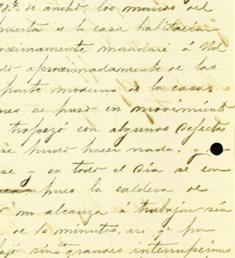 de ancho, los marcos del
puerta de la casa habitacion
oximamente mandaré á Ud
do aproximadamente de las
parte moderno de la casa.
nes se puso en movimiento
tropezó con algunos defectos
se pudo hacer nada, y
se y en todo el Dia se con
pues la caldera de
no alcanza á trabajar sin
de 10 minutos, asi qe por
bajó sin grandes interrupciones